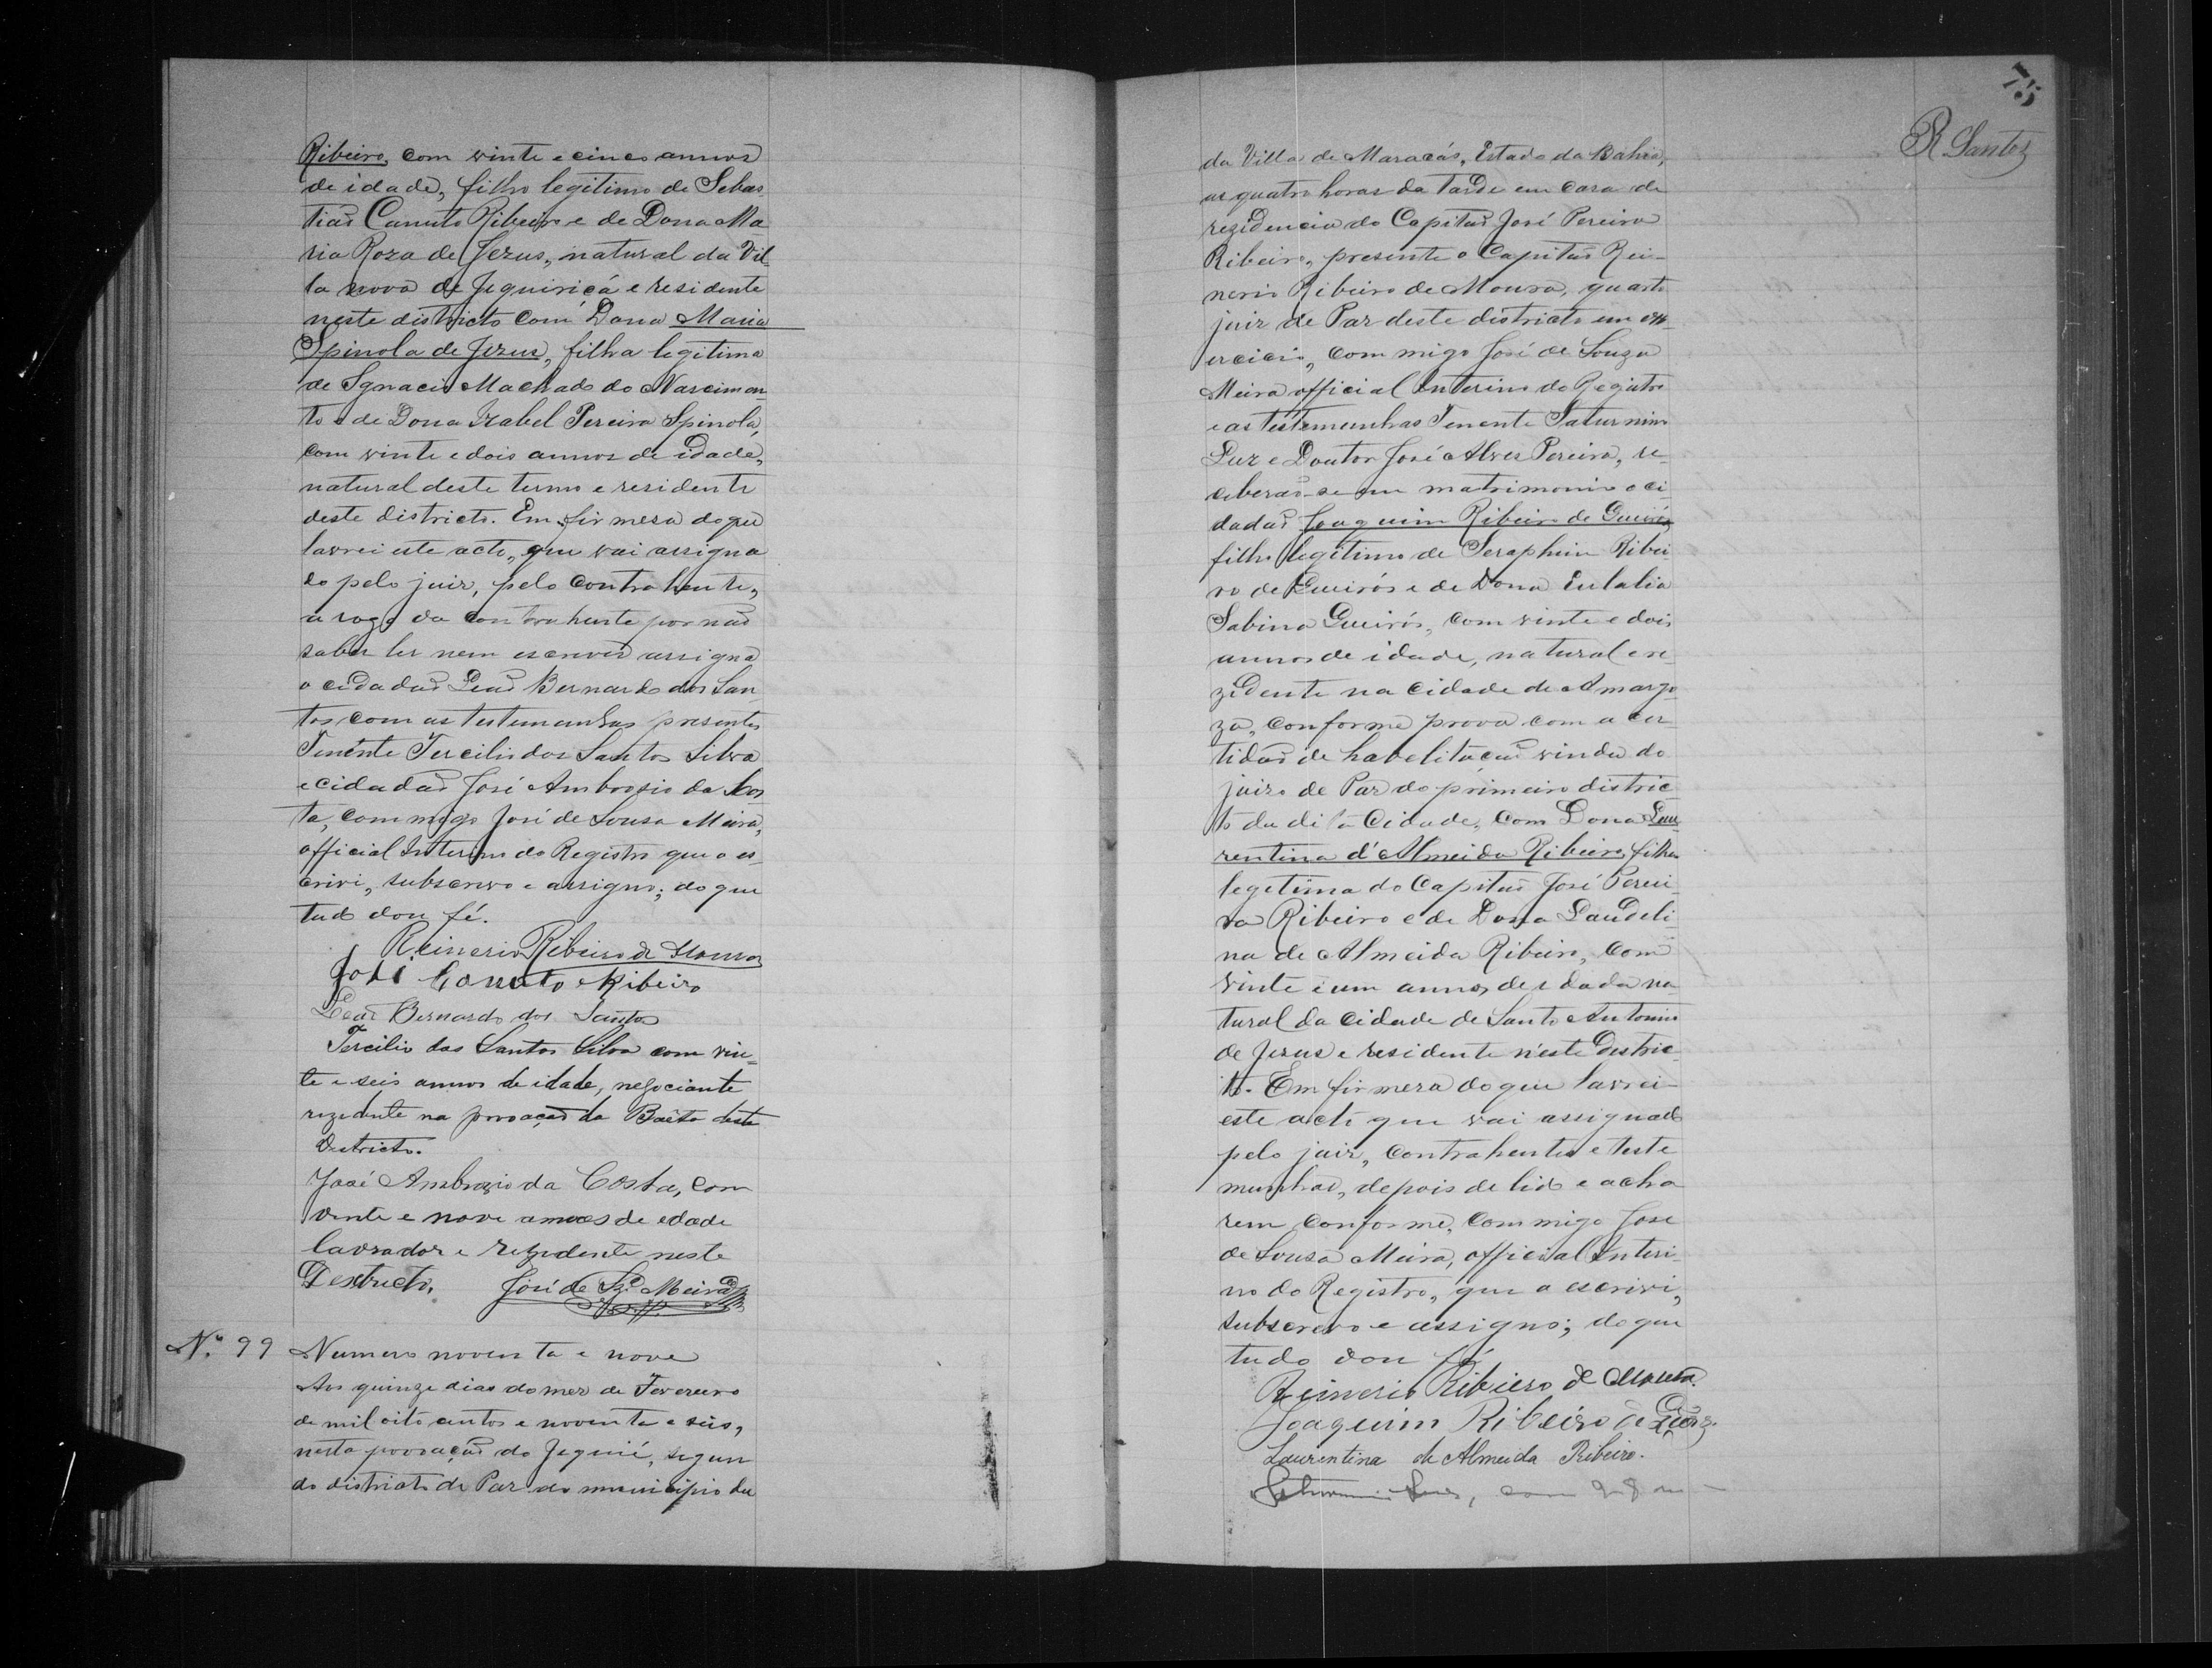 Ribeiro, com vinte e cinco annos
de idade, filho legitimo de Sebas
tião Canuto Ribeiro e de Dona Ma
ria Roza de Jezus, natural da Vil
la nova de Jequiriçá e residente
neste districto com Dona Maria
Spinola de Jezus, filha legitima
de Ignacio Machado do Nascimen
to e de Dona Izabel Pereira Spinola,
com vinte e dois annos de idade,
natural deste termo e residente
deste districto. Em firmesa do que
lavrei este acto, que vai assigna
do pelo juiz, pelo contrahente,
a rogo da contrahente por não
saber ler nem escrever assigna
o cidadão Leão Bernardo dos San
tos com as testemunhas presentes
Tenente Tercilio dos Santos Silva
e cidadão José Ambrosio da Cos
ta, commigo José de Sousa Meira,
official Interino do Registro que o es-
crivi, subscrevo e assigno; do que
tudo dou fé.
Reinerio Ribeiro de Moura
José Canuto Ribeiro
Leão Bernardo dos Santos
Tercilio dos Santos Silva com vin=
te e seis annos de idade, negociante
rezedente na provoação da Baêta deste
Destricto.
José Ambrozio da Costa, com
vinte e nove annos de edade
lavrador e rezedente neste
Destricto, José de Sz.ª Meira
N.º 99 Numero noventa e nove
Aos quinze dias do mez de Fevereiro
de mil oito centos e noventa e seis,
nesta povoação do Jequié, segun
do districto de Paz do municipio da
75
R Santos
da Villa de Maracás, Estado da Bahia,
as quatro horas da tarde em casa de
rezidencia do Capitão José Pereira
Ribeiro, presente o Capitão Rei-
nerio Ribeiro de Moura, quarto
juiz de Paz deste districto em ex-
ercicio, commigo José de Souza
Meira official Interino do Registro
e as testemunhas Tenente Saturnino
Luz e Doutor José Alves Pereira, re-
ceberão-se em matrimonio o ci-
dadão Joaquim Ribeiro de Queirós
filho legitimo de Seraphim Ribei
ro de Queirós e de Dona Eulalia
Sabina Queirós, com vinte e dois
annos de idade, natural e re-
zidente na Cidade de Amargo
za, conforme prova com a cer
tidão de habelitação vinda do
juizo de Paz do primeiro distric
to da dita Cidade, com Dona Lau
rentina d'Almeida Ribeiro, filha
legetima do Capitão José Perei-
ra Ribeiro e de Dona Laudeli-
na de Almeida Ribeiro, com
vinte e um annos de idade na-
tural da Cidade de Santo Antonio
de Jezus e residente n'este Destric-
to. Em firmeza do que lavrei
este acto que vai assignado
pelo juiz, contrahentes e teste
munhas, depois de lido e acha
rem conforme, commigo José
de Sousa Meira, official Interi-
no do Registro, que o escrivi,
subscrevo e assigno; do que
tudo dou fé
Reinerio Ribeiro de Moura.
Joaquim Ribeiro de
Laurentina de Almeida Ribeiro.
Luz, com 28